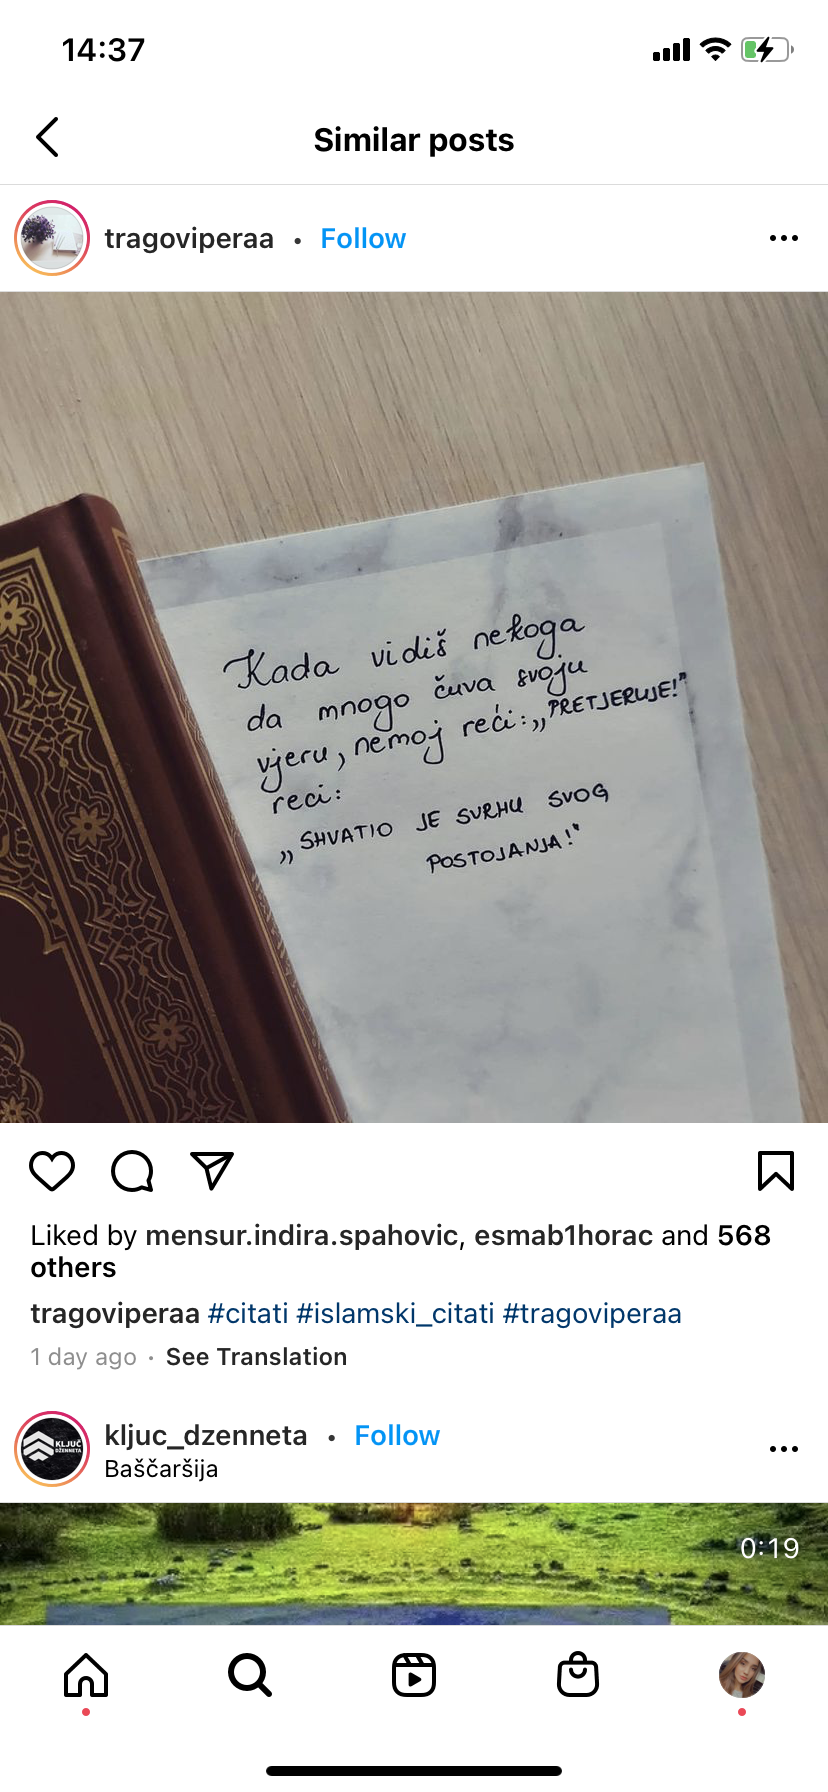 14:37
Similar posts
tragoviperaa • Follow
Kada vidiš nekoga
da mnogo čuva svoju
vjeru, nemoj reći: „PRETJERUJE!"
reci:
„SHVATIO JE SVRHU SVOG
POSTOJANJA!"
Liked by mensur.indira.spahovic, esmab1horac and 568
others
tragoviperaa #citati #islamski_citati #tragoviperaa
1 day ago · See Translation
KLJUČ
DŽENNETA
kljuc_dzenneta • Follow
Baščaršija
0:19